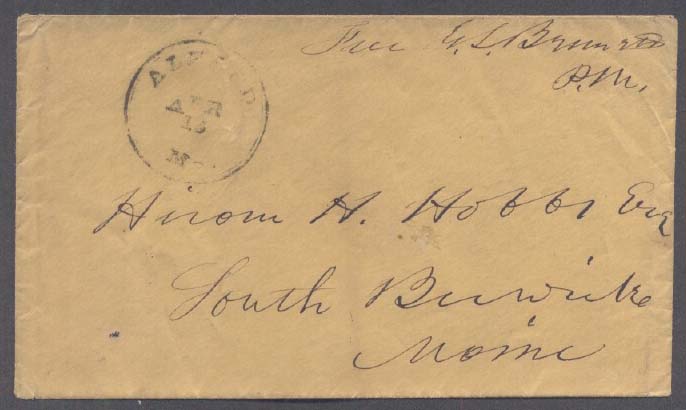 Free
P.M.
ALFRED
APR
Me.
Hiram H. Hobbs Esq
South Berwick
Maine